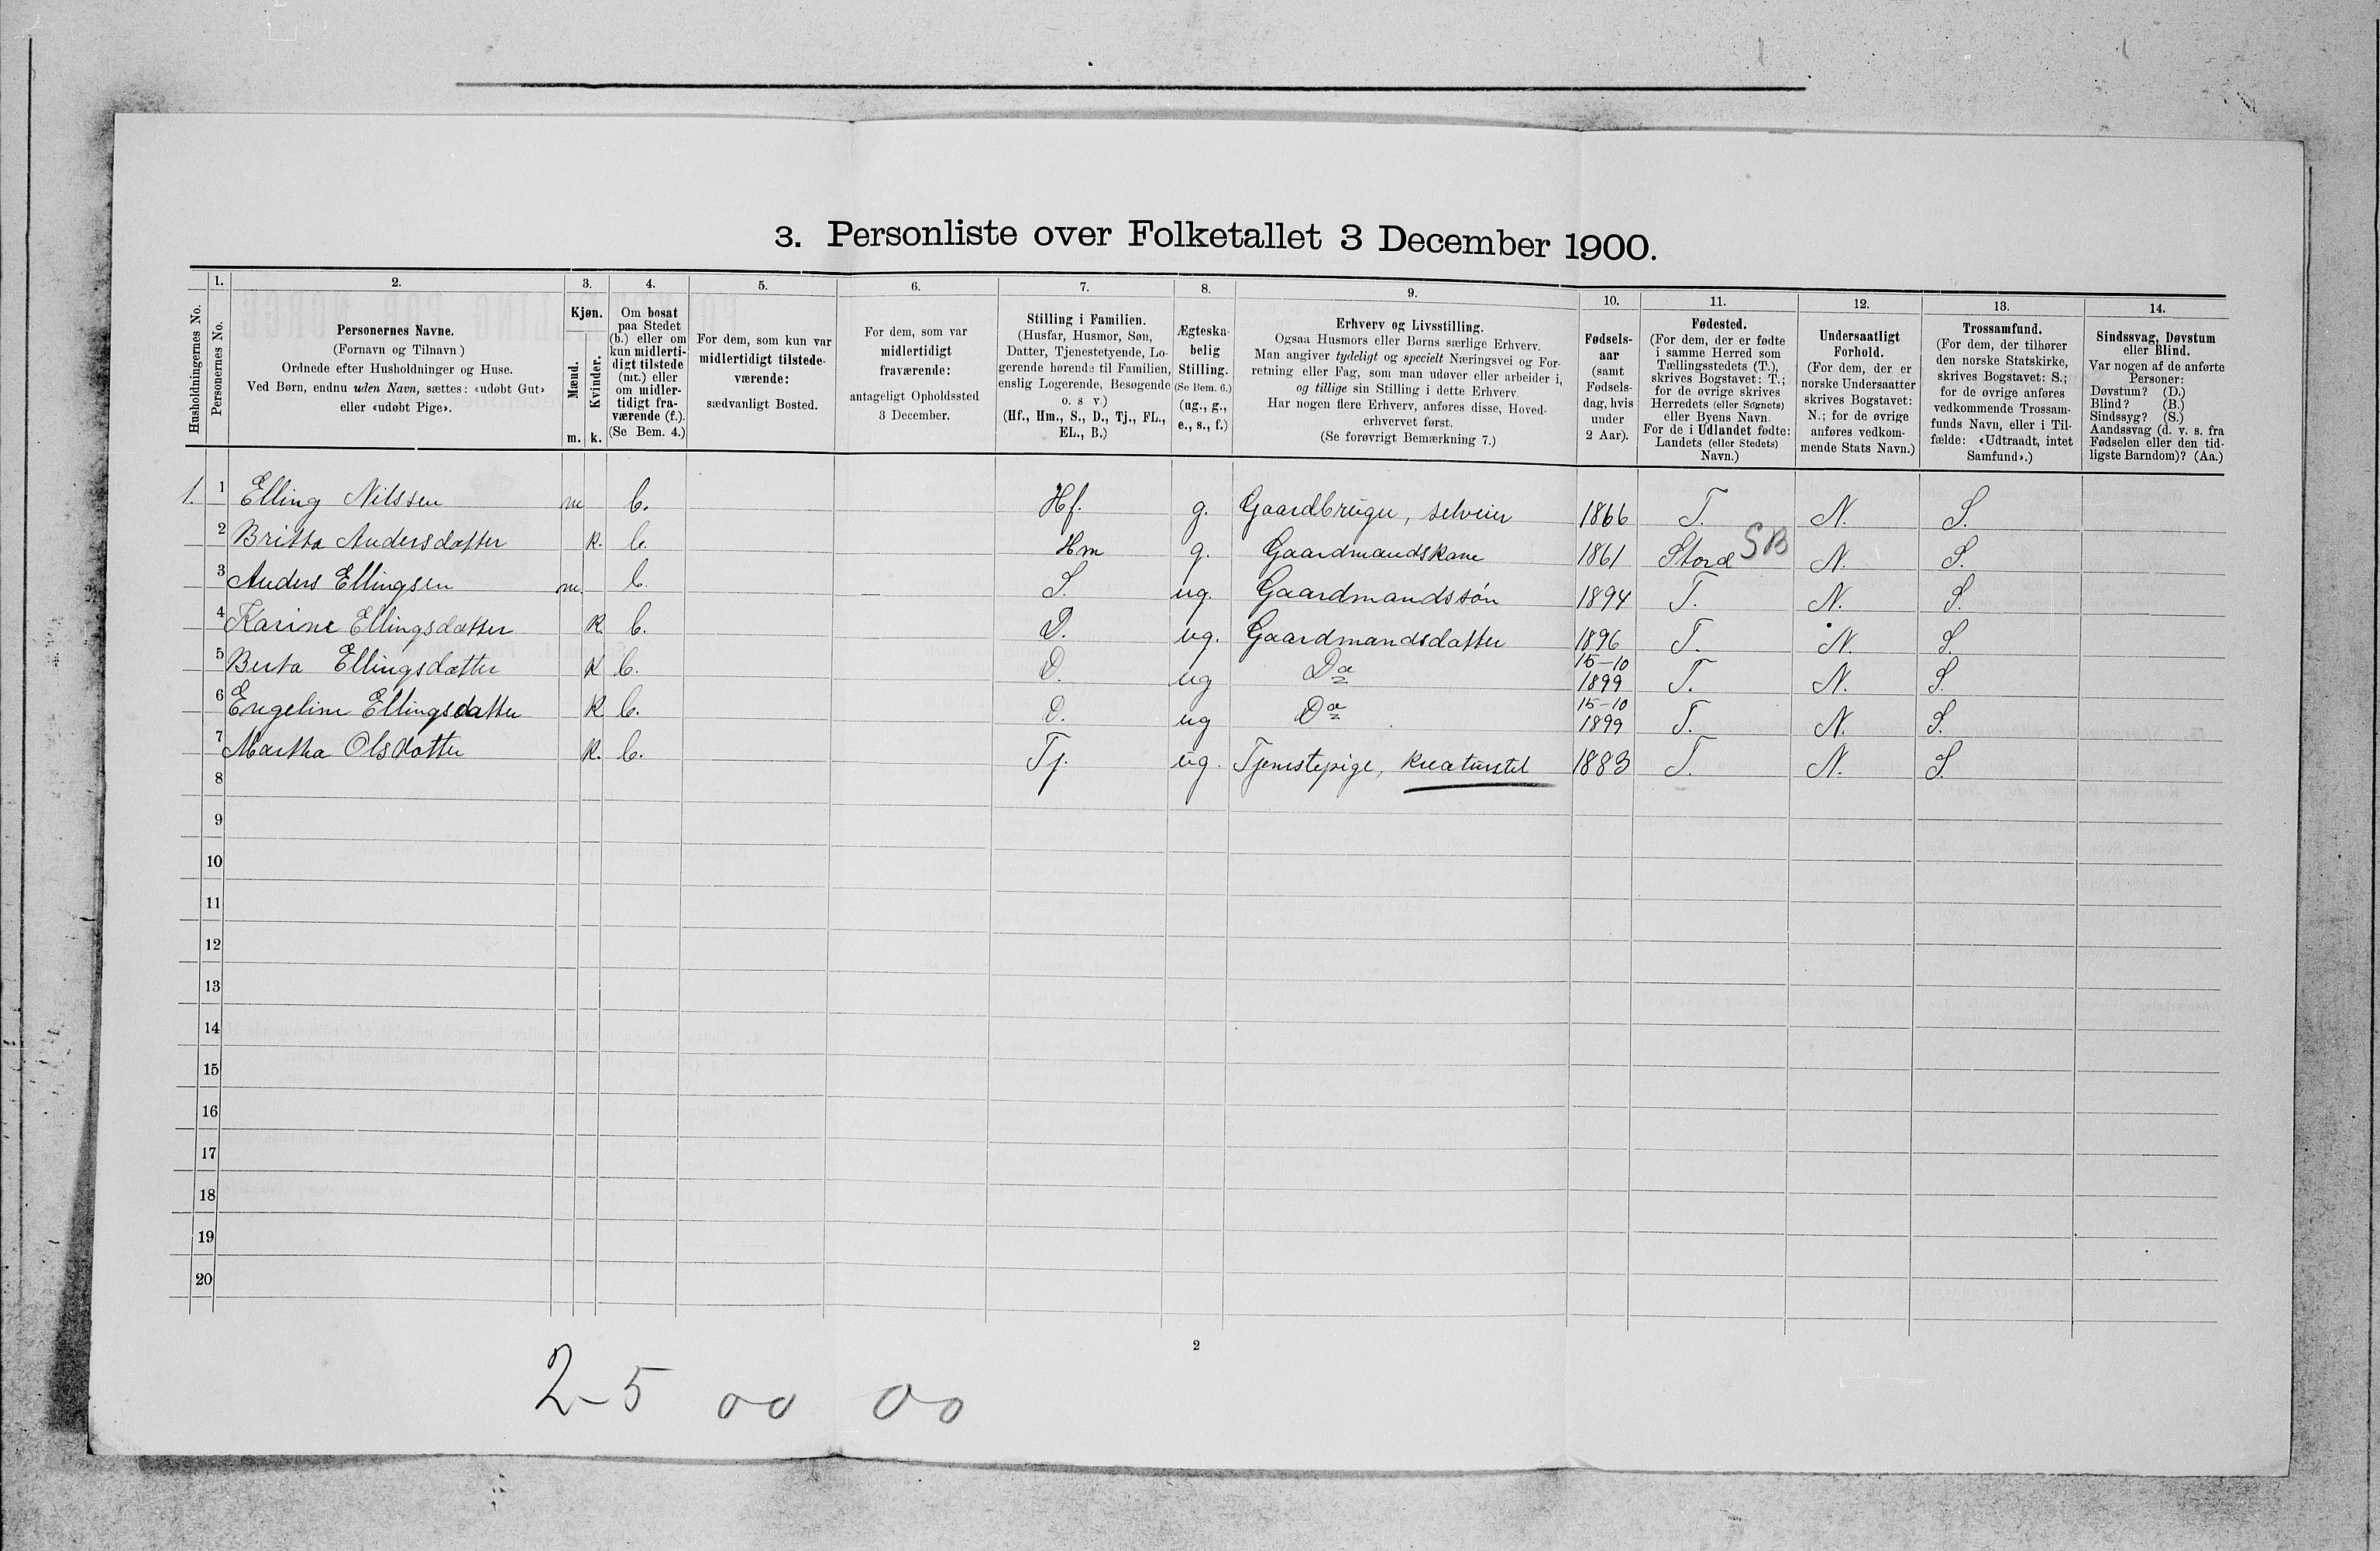 3. Personliste over Folketallet 3 December 1900.
1. 2. 3. 4. 5. 6. 7. 8. 9. 10. 11. 12. 13. 14.
Husholdningernes No.
Personernes No.
Personernes Navne.
(Fornavn og Tilnavn)
Ordnede efter Husholdninger og Huse.
Ved Børn, endnu uden Navn, sættes: «udøbt Gut»
eller «udøbt Pige».
Kjøn.
Mænd.
Kvinder.
m. k.
Om bosat
paa Stedet
(b.) eller om
kun midlerti-
digt tilstede
(mt.) eller
om midler-
tidigt fra-
værende (f.).
(Se Bem. 4.)
For dem, som kun var
midlertidigt tilstede-
værende:
sædvanligt Bosted.
For dem, som var
midlertidigt
fraværende:
antageligt Opholdssted
3 December.
Stilling i Familien.
(Husfar, Husmor, Søn,
Datter, Tjenestetyende, Lo-
gerende hørende til Familien,
enslig Logerende, Besøgende
o. s v.)
(Hf., Hm., S., D., Tj., FL.,
EL., B.)
Ægteska-
belig
Stilling.
(Se Bem. 6.)
(ug., g.,
e., s., f.)
Erhverv og Livsstilling.
Ogsaa Husmors eller Børns særlige Erhverv.
Man angiver tydeligt og specielt Næringsvei og For-
retning eller Fag, som man udøver eller arbeider i,
og tillige sin Stilling i dette Erhverv.
Har nogen flere Erhverv, anføres disse, Hoved-
erhvervet først.
(Se forøvrigt Bemærkning 7.)
Fødsels-
aar
(samt
Fødsels-
dag, hvis
under
2 Aar).
Fødested.
(For dem, der er fødte
i samme Herred som
Tællingsstedets (T.),
skrives Bogstavet: T.;
for de øvrige skrives
Herredets (eller Sognets)
eller Byens Navn.
For de i Udlandet fødte:
Landets (eller Stedets)
Navn.)
Undersaatligt
Forhold.
(For dem, der er
norske Undersaatter
skrives Bogstavet:
N.; for de øvrige
anføres vedkom-
mende Stats Navn.)
Trossamfund.
(For dem, der tilhører
den norske Statskirke,
skrives Bogstavet: S.;
for de øvrige anføres
vedkommende Trossam-
funds Navn, eller i Til-
fælde: «Udtraadt, intet
Samfund».)
Sindssvag, Døvstum
eller Blind.
Var nogen af de anførte
Personer:
Døvstum? (D.)
Blind? (B.)
Sindssyg? (S.)
Aandssvag (d. v. s. fra
Fødselen eller den tid-
ligste Barndom)? (Aa.)
1. 1 Elling Nilssen m b. Hf. g. Gaardbruger, selveier 1866 T. N. S.
2 Britta Andersdatter k. b. Hm g. Gaardmandskone 1861 Stord SB N. S.
3 Anders Ellingsen m. b. S. ug. Gaardmandssøn 1894 T. N. S.
4 Karine Ellingsdatter k. b. D. ug. Gaardmandsdatter 1896 T. N. S.
5 Berta Ellingsdatter k b. D. ug Do 15-10 1899 T. N. S.
6 Engeline Ellingsdatter k b. D. ug Do 15-10 1899 T. N. S.
7 Martha Olsdatter k. b. Tj. ug. Tjenestepige, kreaturstel 1883 T. N. S.
8
9
10
11
12
13
14
15
16
17
18
19
20
2
2-5 00 00